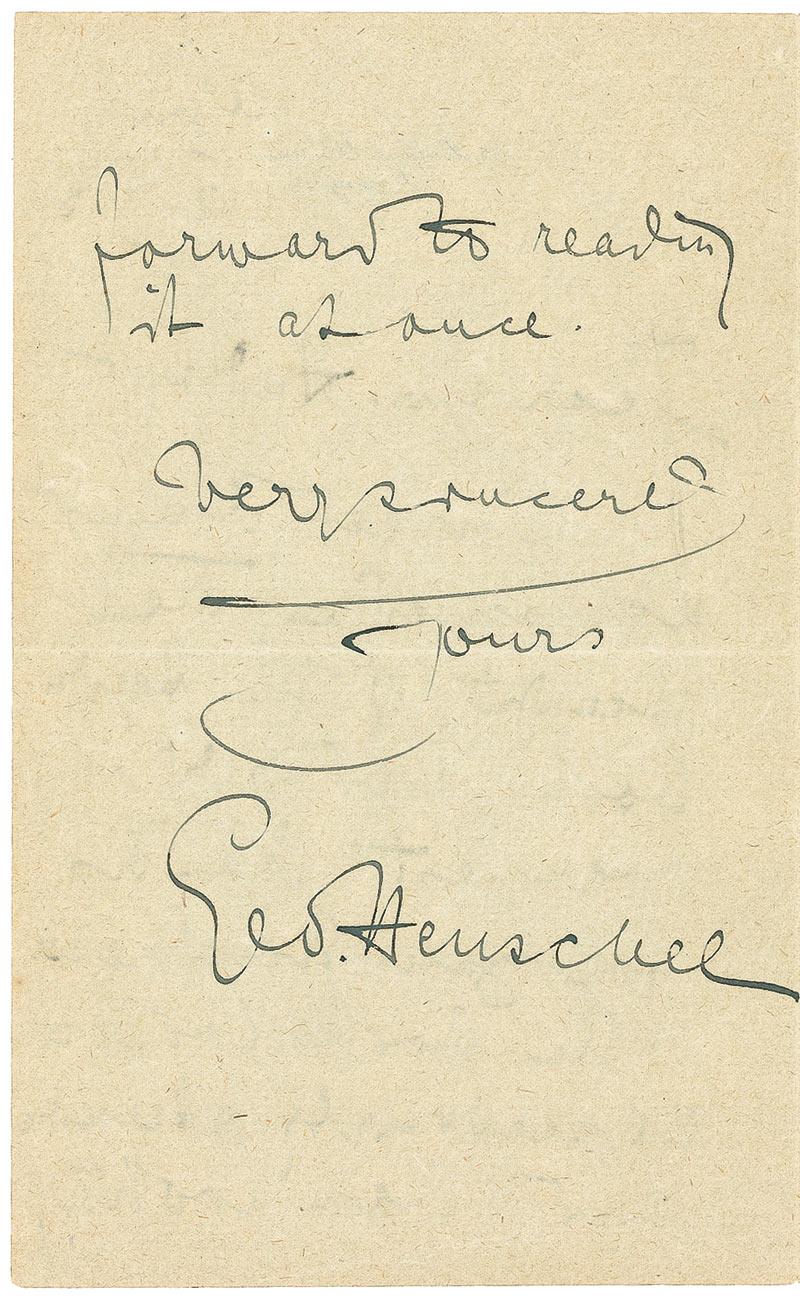 forward to reading
it at once.
Very sincerely
Yours
Geo. Henschel